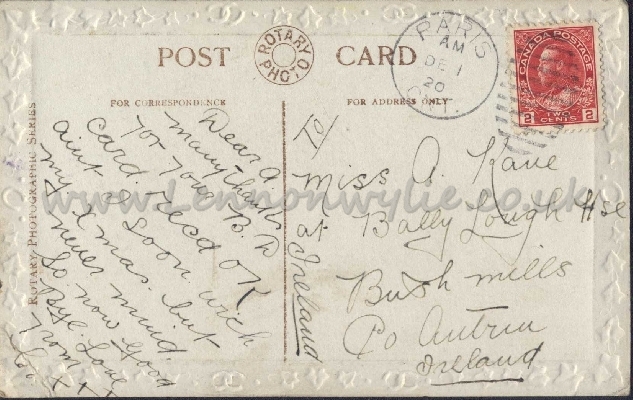 POST CARD
ROTARY PHOTO
FOR CORRESPONDENCE
FOR ADDRESS ONLY
ROTARY PHOTOGRAPHIC SERIES
PARIS
AM
DE 1
20
ONT.
CANADA POSTAGE
2 TWO CENTS 2
www.Lennonwylie.co.uk
Dear A
many thanks
for your B.D
card. Recd OK
aint I soon wich
my Xmas. but
never mind
So now good
Bye Love
from
X X X
To/
Miss A. Kane
Bally Lough Hse
at
Bush mills
Co Antrim
Ireland
Ireland